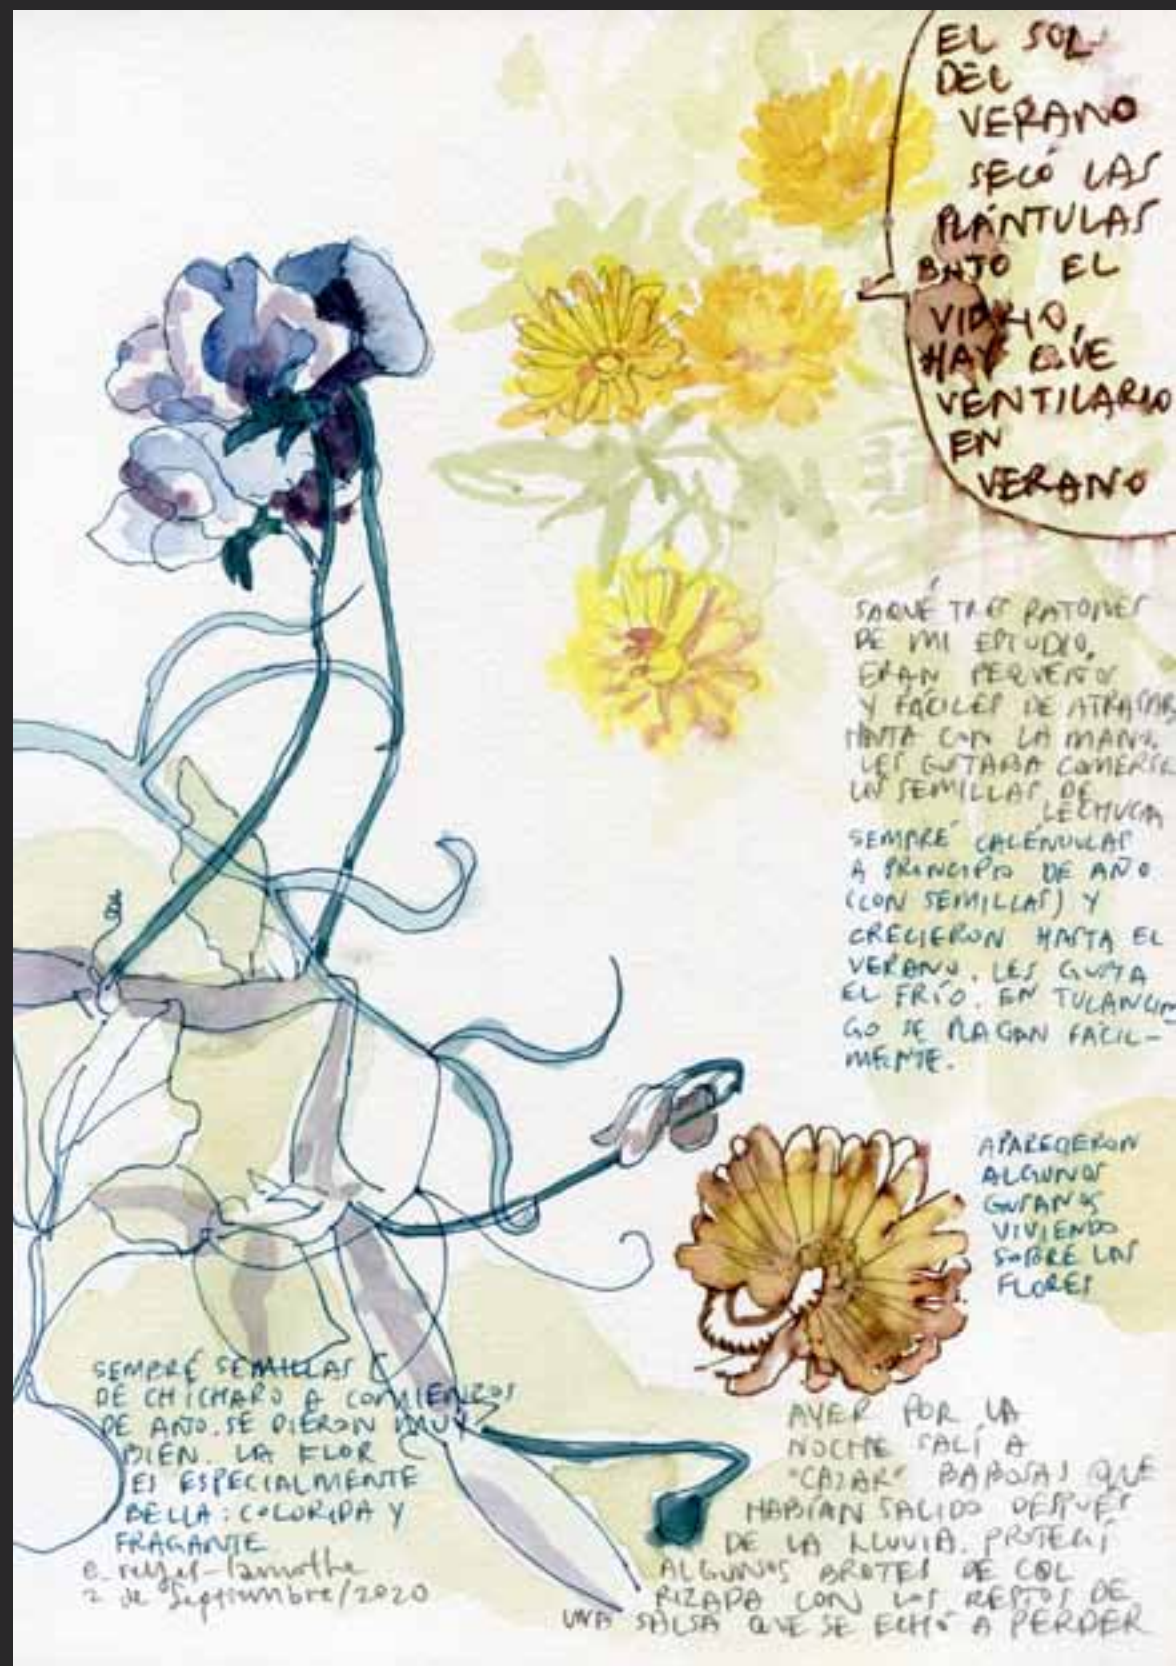 EL SOL
DEL
VERANO
SECÓ LAS
PLÁNTULAS
BAJO EL
VIDRIO,
HAY QUE
VENTILARLO
EN
VERANO
SAQUÉ TRES RATONES
DE MI ESTUDIO,
ERAN PEQUEÑOS
Y FÁCILES DE ATRAPAR
HASTA CON LA MANO.
LES GUSTABA COMERSE
LAS SEMILLAS DE
LECHUGA
SEMBRÉ CALÉNDULAS
A PRINCIPIO DE AÑO
(CON SEMILLAS) Y
CRECIERON HASTA EL
VERANO. LES GUSTA
EL FRÍO. EN TULANCIN
GO SE PLAGAN FÁCIL-
MENTE.
APARECIERON
ALGUNOS
GUSANOS
VIVIENDO
SOBRE LAS
FLORES
SEMBRÉ SEMILLAS
DE CHÍCHARO A COMIENZOS
DE AÑO. SE DIERON MUY
BIEN. LA FLOR
ES ESPECIALMENTE
BELLA: COLORIDA Y
FRAGANTE
e. reyes-lamothe
2 de Septiembre/2020
AYER POR LA
NOCHE SALÍ A
"CAZAR" BABOSAS QUE
HABÍAN SALIDO DESPUÉS
DE LA LLUVIA. PROTEGÍ
ALGUNOS BROTES DE COL
RIZADA CON LOS RESTOS DE
UNA SALSA QUE SE ECHÓ A PERDER